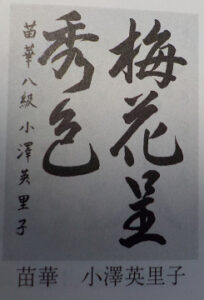 梅花呈
秀色
苗華八級小澤英里子
苗華　小澤英里子